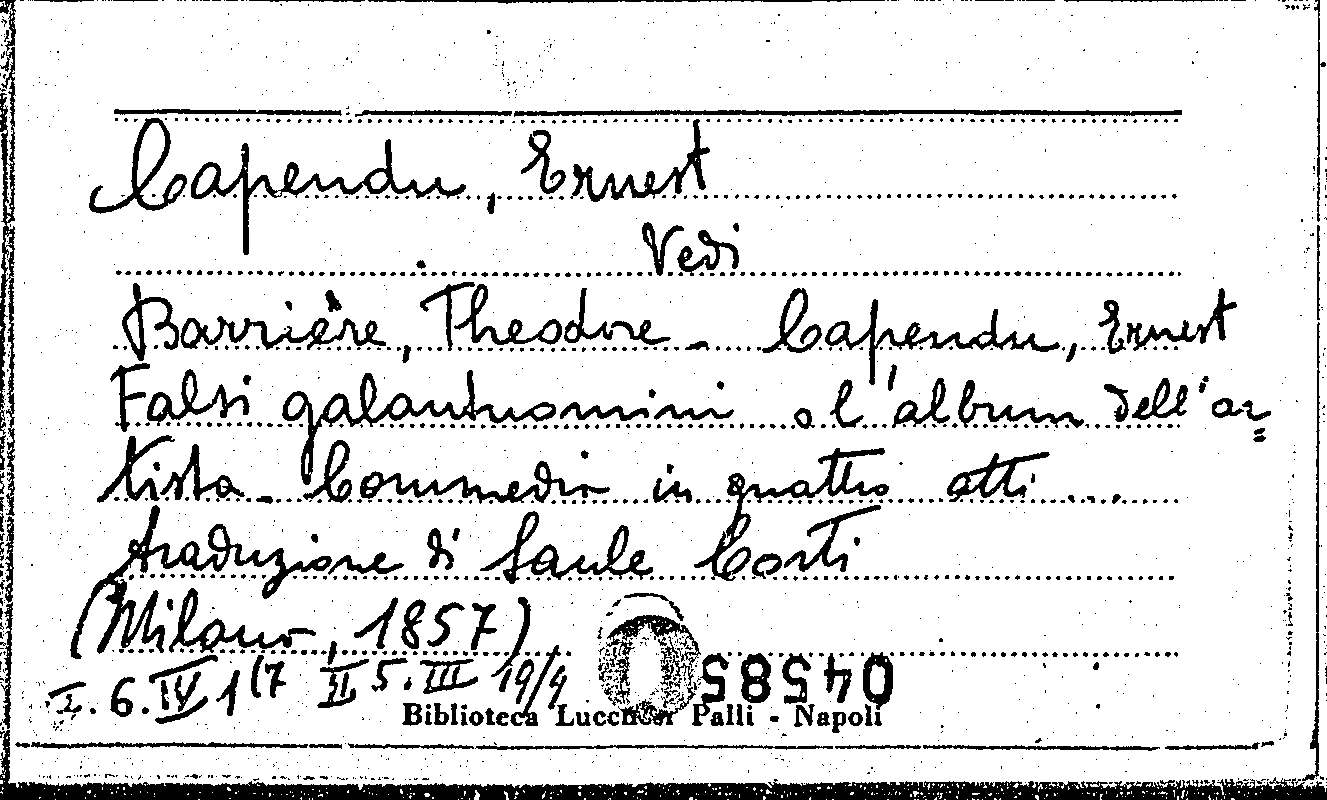 Capendu, Ernest
Vedi
Barrière, Theodore - Capendu, Ernest
Falsi galantuomini o l'album dell'ar=
tista - Commedia in quattro atti ...
traduzione di Saule Corti
(Milano, 1857)
I. 6. IV 1(7 II 5. III 19/4
04585
Biblioteca Lucchesi Palli - Napoli